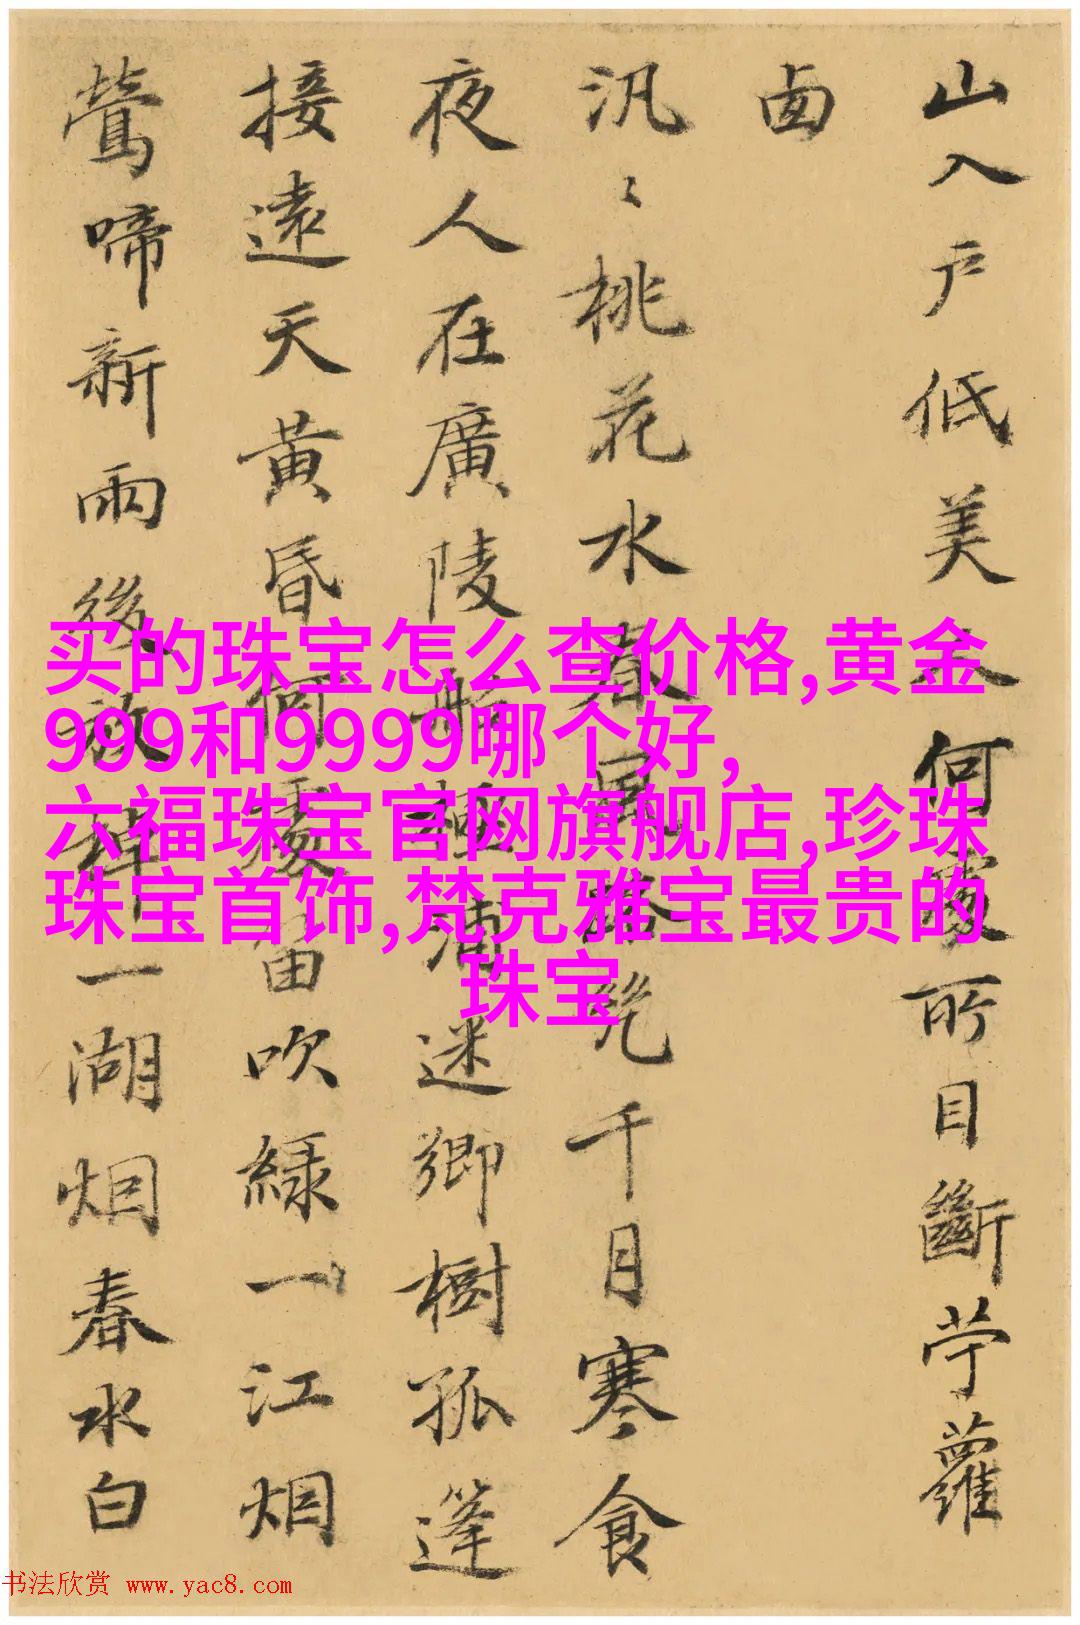 山入戶低美人何處所目斷苧蘿
卤
汎〻桃花水春路幾千月寒食
夜人在廣陵船極浦迷鄉樹孤篷
接遠天黃昏何處笛吹綠一江烟
鶯啼新雨後放棹一湖烟春水白
买的珠宝怎么查价格,黄金
999和9999哪个好,
六福珠宝官网旗舰店,珍珠
珠宝首饰,梵克雅宝最贵的
珠宝
书法欣赏 www.yac8.com